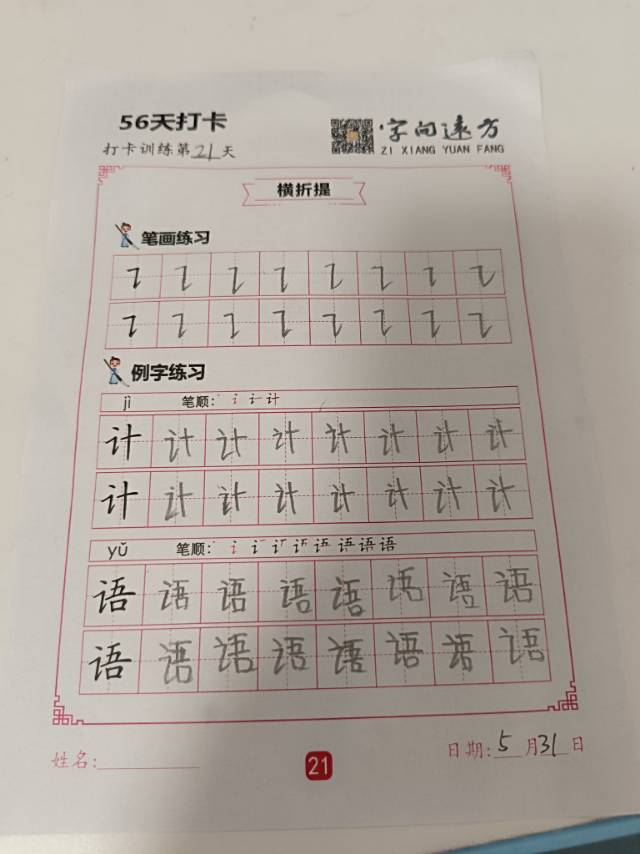 56天打卡
打卡训练第21天
字向远方
ZI XIANG YUAN FANG
横折提
笔画练习
㇊ ㇊ ㇊ ㇊ ㇊ ㇊ ㇊ ㇊
㇊ ㇊ ㇊ ㇊ ㇊ ㇊ ㇊ ㇊
例字练习
jì 笔顺:
计 计 计 计 计 计 计 计
计 计 计 计 计 计 计 计
yǔ 笔顺:
语 语 语 语 语 语 语 语
语 语 语 语 语 语 语 语
姓名:
21
日期:5月31日